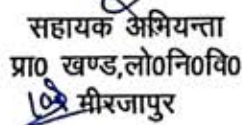 सहायक अभियन्ता
प्रा0 खण्ड,लो0नि0वि0
मीरजापुर